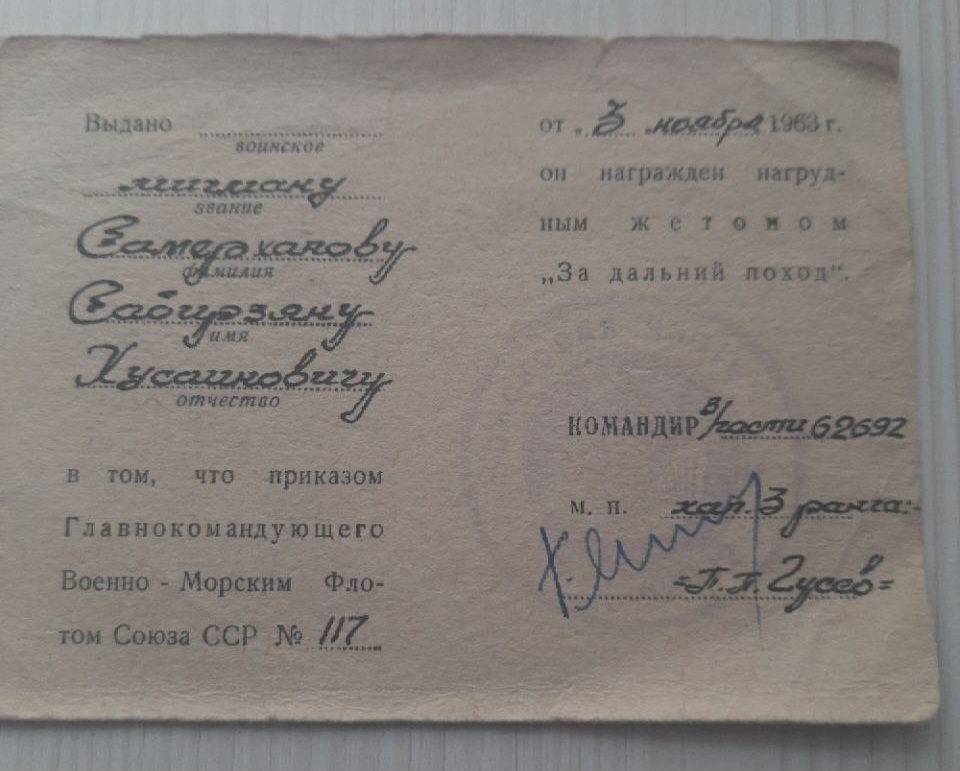 Выдано
воинское
мичману
звание
Самерханову
фамилия
Сабирзяну
имя
Хусаиновичу
отчество
в том, что приказом
Главнокомандующего
Военно - Морским Фло-
том Союза ССР № 117
от „3„ ноября 1963 г.
он награжден нагруд-
ным жетоном
„За дальний поход“.
КОМАНДИР в/части 62692
м. п. кап. 3 ранга:-
=П.П. Гусев=